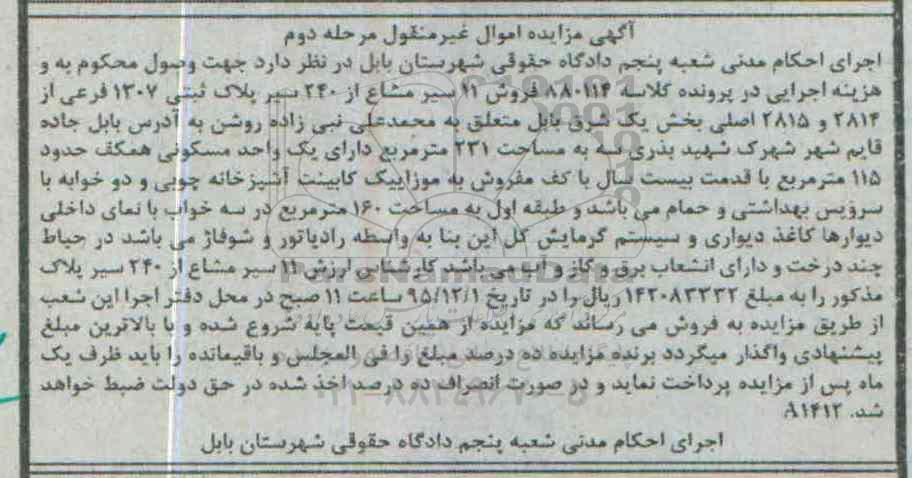 آگهی مزایده اموال غیرمنقول مرحله دوم
اجرای احکام مدنی شعبه پنجم دادگاه حقوقی شهرستان بابل در نظر دارد جهت وصول محکوم به و
هزینه اجرایی در پرونده کلاسه ۸۸۰۱۱۴ فروش ۱۱ سیر مشاع از ۲۴۰ سیر پلاک ثبتی ۱۳۰۷ فرعی از
۲۸۱۴ و ۲۸۱۵ اصلی بخش یک شرق بابل متعلق به محمدعلی نبی زاده روشن به آدرس بابل جاده
قایم شهر شهرک شهید بذری سه به مساحت ۲۳۱ مترمربع دارای یک واحد مسکونی همکف حدود
۱۱۵ مترمربع با قدمت بیست سال با کف مفروش به موزاییک کابینت آشپزخانه چوبی و دو خوابه با
سرویس بهداشتی و حمام می باشد و طبقه اول به مساحت ۱۶۰ مترمربع در سه خواب با نمای داخلی
دیوارها کاغذ دیواری و سیستم گرمایش کل این بنا به واسطه رادیاتور و شوفاژ می باشد در حیاط
چند درخت و دارای انشعاب برق و گاز و آب می باشد کارشناس ارزش ۱۱ سیر مشاع از ۲۴۰ سیر پلاک
مذکور را به مبلغ ۱۴۲۰۸۳۳۳۲ ریال را در تاریخ ۹۵/۱۲/۱ ساعت ۱۱ صبح در محل دفتر اجرا این شعب
از طریق مزایده به فروش می رساند که مزایده از همین قیمت پایه شروع شده و با بالاترین مبلغ
پیشنهادی واگذار میگردد برنده مزایده ده درصد مبلغ را فی المجلس و باقیمانده را باید ظرف یک
ماه پس از مزایده پرداخت نماید و در صورت انصراف ده درصد اخذ شده در حق دولت ضبط خواهد
شد. ۹۱۴۱۲
اجرای احکام مدنی شعبه پنجم دادگاه حقوقی شهرستان بابل
ParsNamadData
۰۲۱-۸۸۳۴۹۶۷۰-۵